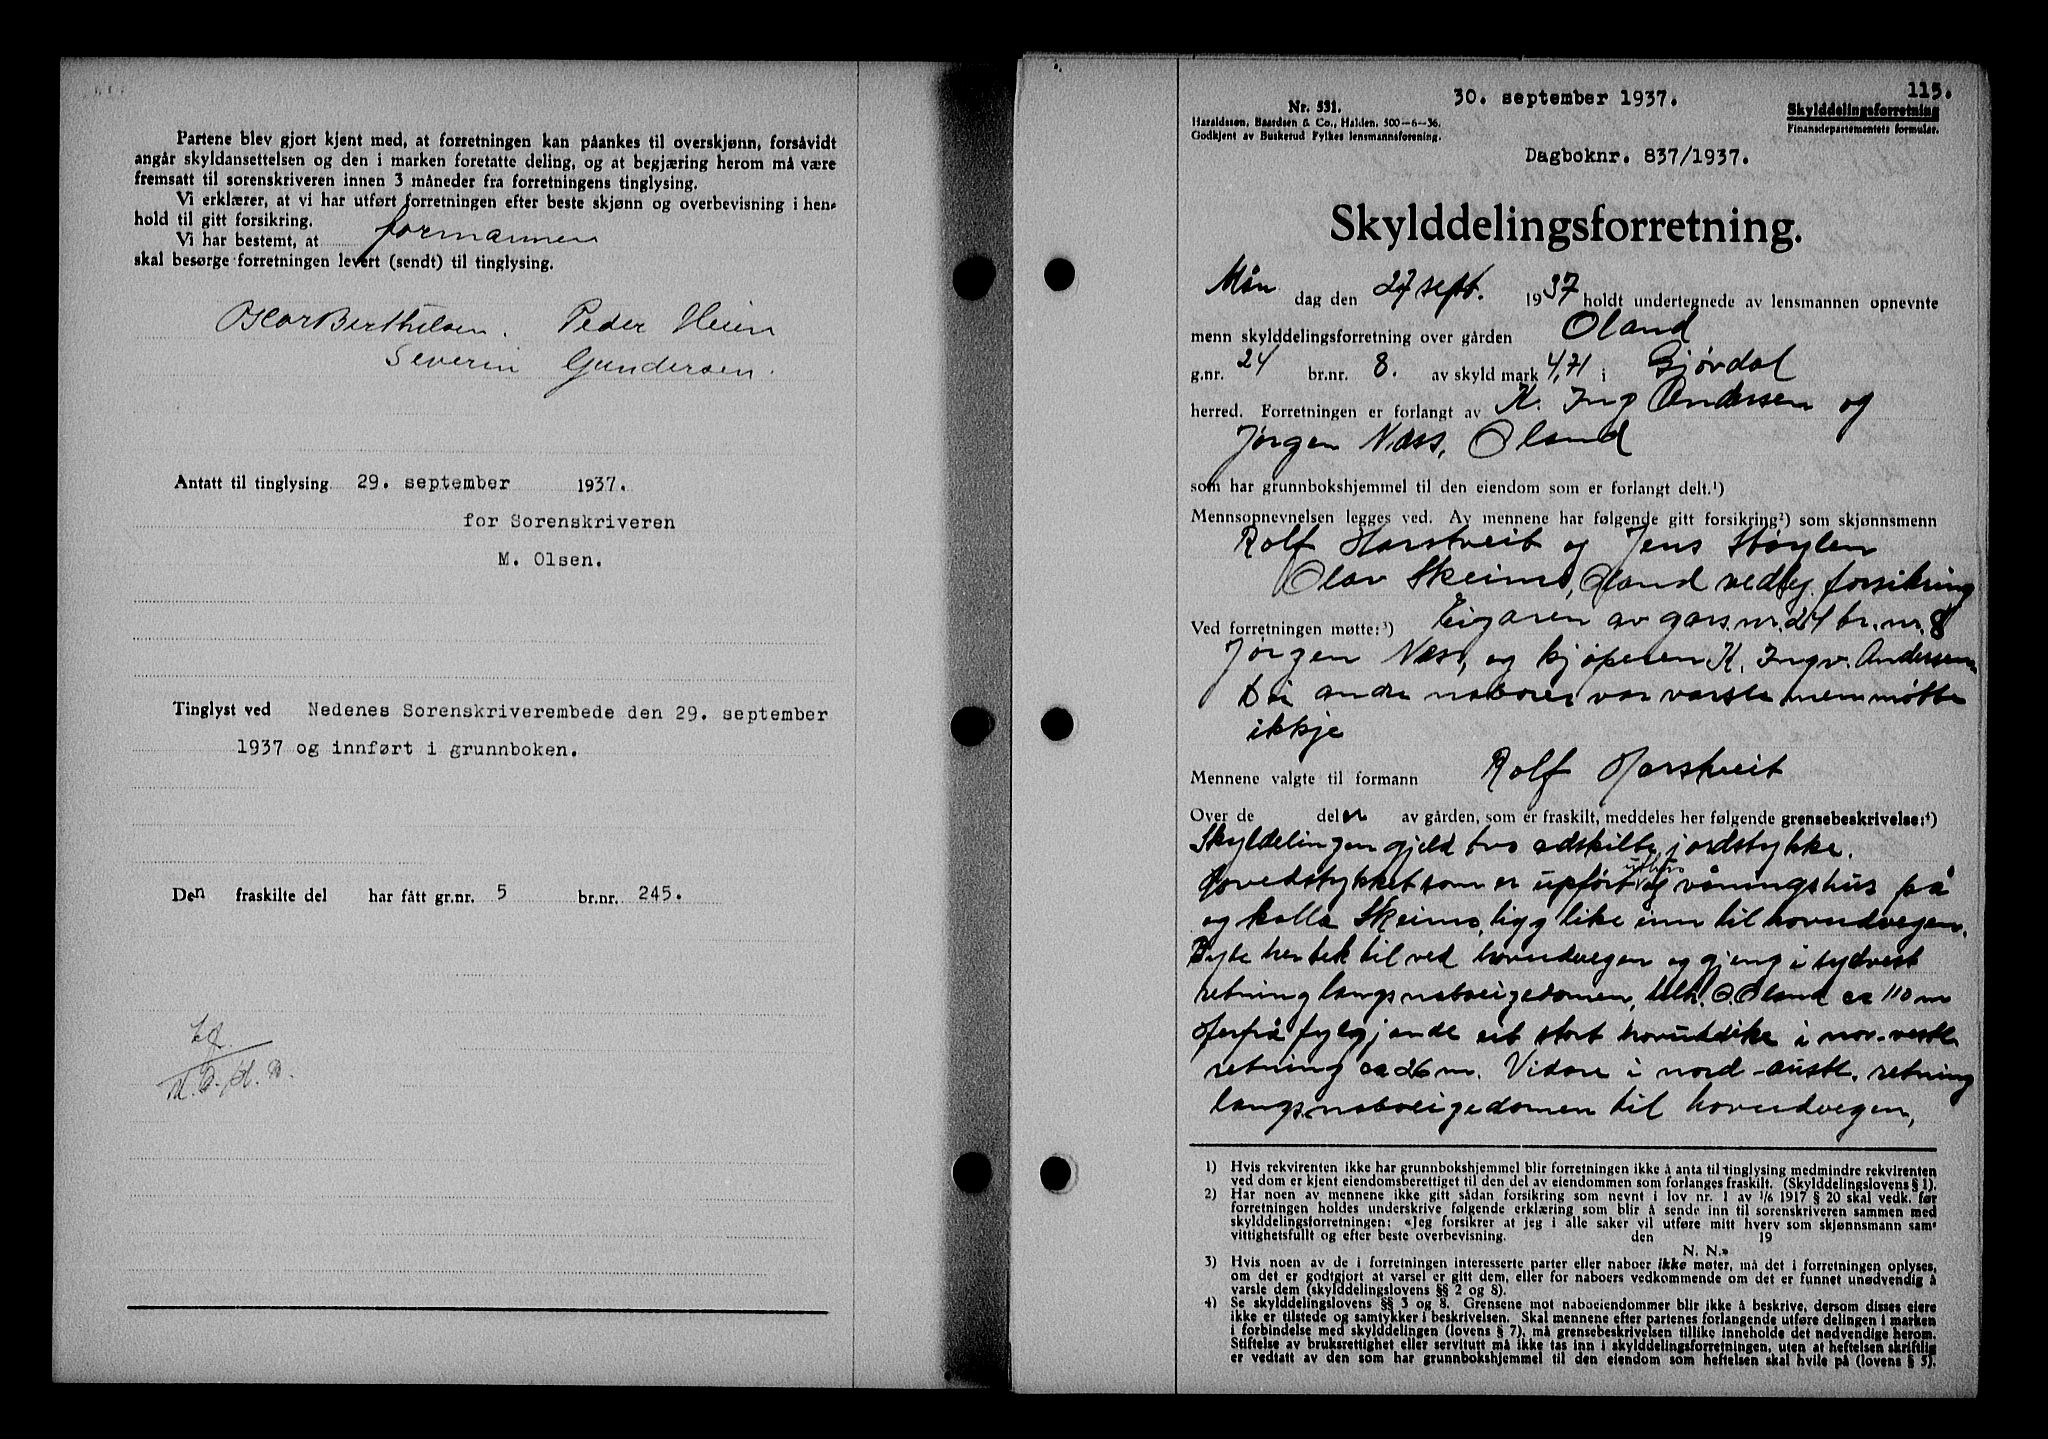 Partene blev gjort kjent med, at forretningen kan påankes til overskjønn, forsåvidt
angår skyldansettelsen og den i marken foretatte deling, og at begjæring herom må være
fremsatt til sorenskriveren innen 3 måneder fra forretningens tinglysing.
Vi erklærer, at vi har utført forretningen efter beste skjønn og overbevisning i hen-
hold til gitt forsikring.
Vi har bestemt, at formannen
skal besørge forretningen levert (sendt) til tinglysing.
Oscar Berthelsen. Peder Heien
Severin Gundersen.
Antatt til tinglysing 29. september 1937.
for Sorenskriveren
M. Olsen.
Tinglyst ved Nedenes Sorenskriverembede den 29. september
1937 og innført i grunnboken.
Den fraskilte del har fått gr.nr. 5 br.nr. 245.
115.
30. september 1937.
Nr. 531.
Haraldssen, Baardsen & Co., Halden. 500-6-36.
Godkjent av Buskerud Fylkes lensmannsforening.
Skylddelingsforretning
Finansdepartementets formular.
Dagboknr. 837/1937.
Skylddelingsforretning.
Mån dag den 27 sept. 1937 holdt undertegnede av lensmannen opnevnte
menn skylddelingsforretning over gården Øland
g.nr. 24 br.nr. 8. av skyld mark 4,71 i Gjøvdal
herred. Forretningen er forlangt av K. Ing Andersen og
Jørgen Næss, Øland
som har grunnbokshjemmel til den eiendom som er forlangt delt.¹)
Mennsopnevnelsen legges ved. Av mennene har følgende gitt forsikring²) som skjønnsmenn
Rolf Harstveit og Jens Støylen
Olav Skeimo, Øland vedlg. forsikring
Ved forretningen møtte:³) Eigaren av gars.nr. 24 br.nr. 8
Jørgen Næss, og kjøperen K. Ingv. Andersen
Dei andre naboer var varsla men møtte
ikkje
Mennene valgte til formann Rolf Harstveit
Over de delen av gården, som er fraskilt, meddeles her følgende grensebeskrivelse:⁴)
Skyldelingen gjeld tvo adskilte jordstykke.
Hovedstykket som er upført uthus og våningshus på
og kalla Skeimo, ligg like inn til hovudvegen.
Byte her tek til ved hovudvegen og gjeng i sydvest
retning langs naboeigedomen, tilh. O. Øland ca 110 m
Herfrå fylgjande eit stort hovuddike i nor-vestl.
retning ca 26 m. Vidare i nord-austl. retning
langs naboeigedomen til hovudvegen,
1) Hvis rekvirenten ikke har grunnbokshjemmel blir forretningen ikke å anta til tinglysing medmindre rekvirenten
ved dom er kjent eiendomsberettiget til den del av eiendommen som forlanges fraskilt. (Skylddelingslovens § 1).
2) Har noen av mennene ikke gitt sådan forsikring som nevnt i lov nr. 1 av 1/6 1917 § 20 skal vedk. før
forretningen holdes underskrive følgende erklæring som blir å sende inn til sorenskriveren sammen med
skylddelingsforretningen: «Jeg forsikrer at jeg i alle saker vil utføre mitt hverv som skjønnsmann sam-
vittighetsfullt og efter beste overbevisning. den 19
N. N.»
3) Hvis noen av de i forretningen interesserte parter eller naboer ikke møter, må det i forretningen oplyses,
om det er godtgjort at varsel er gitt dem, eller for naboers vedkommende om det er funnet unødvendig å
varsle dem (skylddelingslovens §§ 2 og 8).
4) Se skylddelingslovens §§ 3 og 8. Grensene mot naboeiendommer blir ikke å beskrive, dersom disses eiere
ikke er tilstede og samtykker i beskrivelsen. Skal mennene efter partenes forlangende utføre delingen i marken
i forbindelse med skylddelingen (lovens § 7), må grensebeskrivelsen tillike inneholde det nødvendige herom.
Stiftelse av bruksrettighet eller servitutt må ikke tas inn i skylddelingsforretningen, uten at heftelsen skriftlig
er vedtatt av den som har grunnbokshjemmel til den eiendom som heftelsen skal hvile på (lovens § 5).